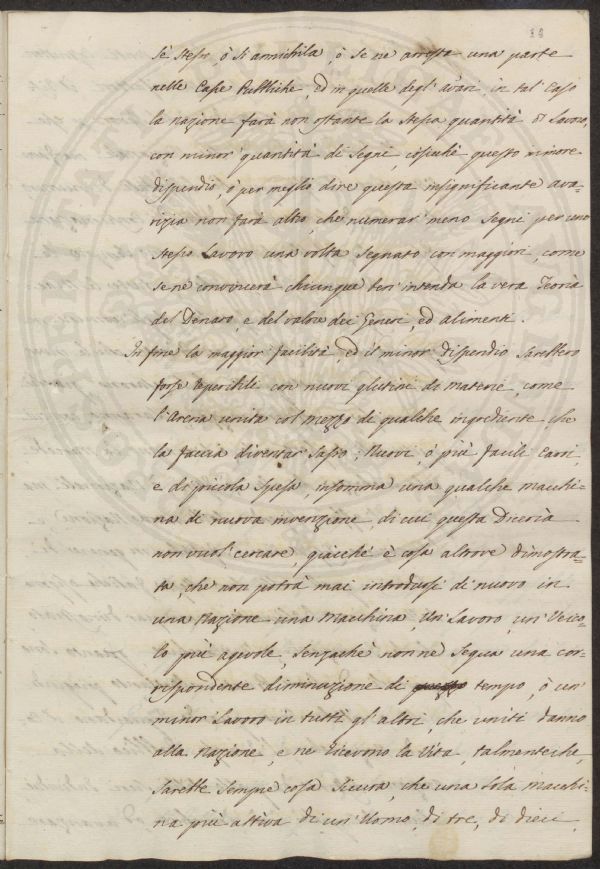 sè stesso, ò si annichila, ò se ne arresta una parte
nelle Casse Pubbliche, ed in quelle degl'avari, in tal caso
la Nazione farà non ostante la stessa quantità di Lavoro,
con minor' quantità di Segni, cosicchè questo minore
dispendio, ò per meglio dire questa insignificante ava=
rizia non farà altro, che numerar' meno Segni per uno
stesso Lavoro una volta segnato con maggiori, come
se ne convincerà chiunque ben' intenda la vera Teorìa
del Denaro, e del valore dei Generi, ed alimenti.
In fine la maggior facilità, ed il minor dispendio sarebbero
forse reperibili con nuovi glutini di materie, come
l'Arena unita col mezzo di qualche ingrediente che
la faccia diventar Sasso; Nuovi, ò più facili Carri,
e di piccola Spesa, insomma una qualche macchi=
na di nuova invenzione, di cui questa Dicerìa
non vuol' cercare, giacchè è cosa altrove dimostra=
ta, che non potrà mai introdursi di nuovo in
una Nazione una Macchina, un' Lavoro, un' Veico=
lo più agevole, senzachè non ne segua una cor=
rispondente diminuzione di tempo, ò un'
minor Lavoro in tutti gl'altri, che uniti danno
alla Nazione, e ne ricevono la Vita, talmenteche,
sarebbe sempre cosa sicura, che una sola macchi=
na più attiva di un' Uomo, di tre, di dieci,